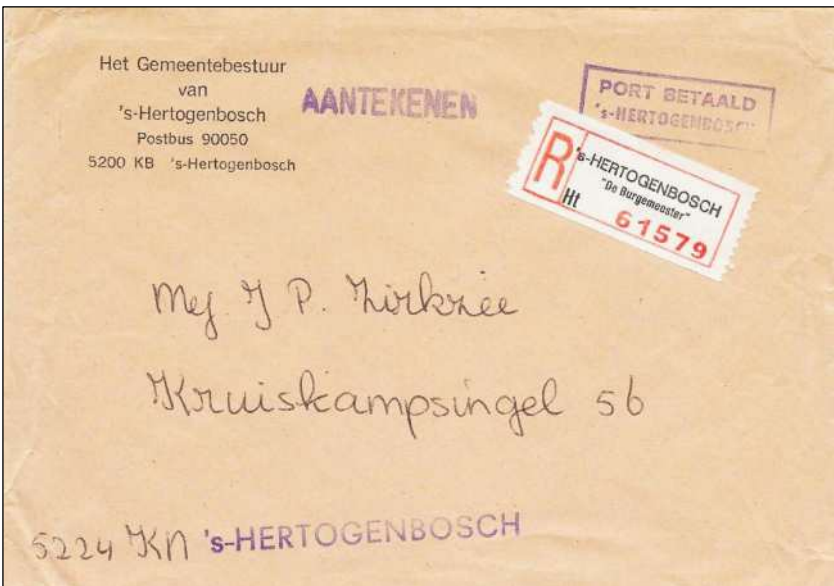 Het Gemeentebestuur
van
's-Hertogenbosch
Postbus 90050
5200 KB 's-Hertogenbosch
AANTEKENEN
PORT BETAALD
's-HERTOGENBOSCH
R
's-HERTOGENBOSCH
"De Burgemeester"
Ht 61579
Mej J P. Zirkzee
Kruiskampsingel 56
5224 KN 's-HERTOGENBOSCH